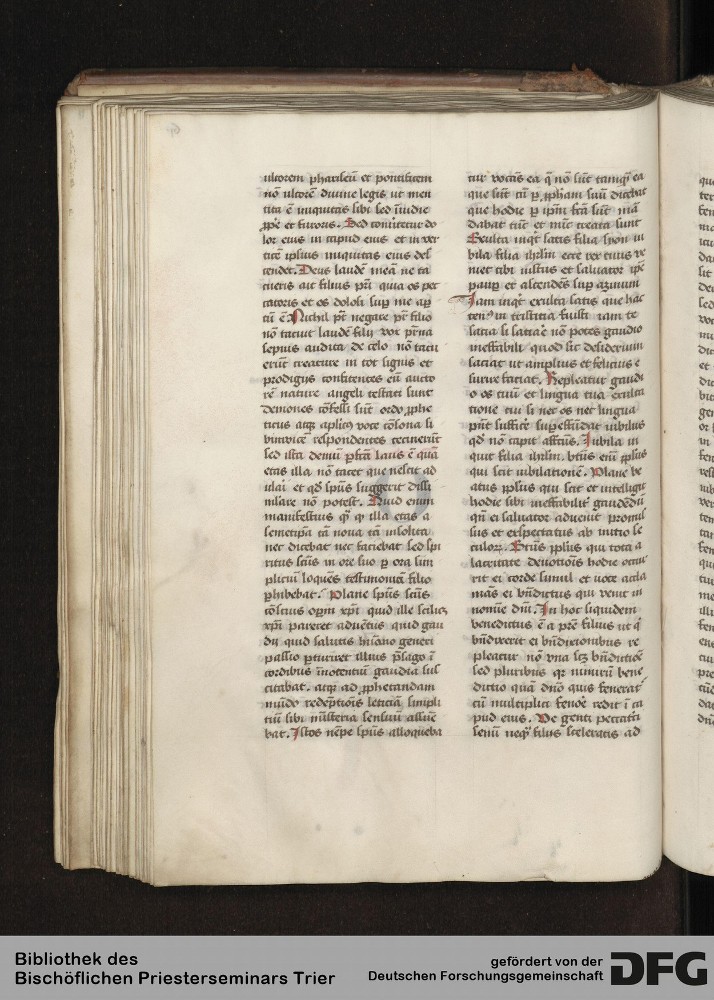 ultorem phariseū et pontificem
nō ultorē divine legis ut men
tita ē iniquitas sibi sed īvidie
ꝓpe et furoris. Sed convertetur do
lor eius in caput eius et in ver
ticē ipsius iniquitas eius des
cendet. Deus laudē meā ne ta
cueris ait filius pr̄i quia os pec
catoris et os dolosi sup me aꝑ
tū ē Nichil pt̄ negare pr̄ filio
nō tacuit laudē filij vox pr̄na
sepius audita de celo nō tacu
erūt creature in tot signis et
prodigijs confitentes eū aucto
rē nature angeli testati sunt
demones cōfessi sūt ordo ꝓphe
ticus atqꝫ aplicꝰ voce cōsona si
bi invicē respondentes cecinerūt
sed ista demū ꝑfcā laus ē quā
etas illa nō tacet que nescit ad
ulari et qd sp̄us suggerit dissi
mulare nō potest. Quid enim
manifestius qͣ qͦ illa etas a
semetip̄a tā nova tā insolita
nec dicebat nec faciebat sed spi
ritus sc̄us in ore suo ꝑ ora sim
pliciū loquēs testimoniū filio
ꝑhibebat. Plane sp̄us sc̄us
cōscius oꝑm xpī quid ille scilicꝫ
xpī pararet adventus quid gau
dij quid salutis hūano generi
passio ꝑturiret illius p̄sago ī
cordibus īnocentiū gaudia sus
citabat. atqꝫ ad ꝓphetandam
mūdo redēptiōis leticiā simpli
ciū sibi mīsteria sensuū assue
bat. Istos nēpe sp̄us alloqueba
tur vocās ea q̄ nō sūt tamqͣ ea
que sūt cū ꝑ ꝓpħam suū dicebat
que hodie ꝑ ip̄m fcā sūt mā
dabat tūc et nūc creata sunt
Exulta inqͥt satis filia syon iu
bila filia ihrlm̄ ecce rex tuus ve
niet tibi iustus et salvator ip̄e
pauꝑ et ascendēs suꝑ azinum
Iam inqͥt exulta satis que hac
tenꝰ in tristitia fuisti iam te
satia si satiare nō potes gaudio
ineffabili quod sic desiderium
saciat ut amplius et felicius e
surire faciat. Repleatur gaudi
o os tuū et lingua tua exulta
tione cui si nec os nec lingua
pn̄t sufficē suꝑeffūdat iubilus
qd nō capit affcūs. Iubila in
quit filia ihrlm̄. btūs em̄ ꝓplus
qui scit iubilationē. Plane be
atus ꝓplus qui scit et intelligit
hodie sibi ineffabilit̄ gaudēdū
qn̄ ei salvator advenit promis
sus et exspectatus ab initio se
culoꝝ. Btūs ꝓplus qui tota a
lacritate devotiōis hodie occur
rit ei corde simul et voce accla
mās ei bn̄dictus qui venit in
nomīe dn̄i. In hoc siquidem
benedictus ē a pr̄e filius ut qͥ
bn̄dixerit ei bn̄dictionibus re
pleatur nō una sꝫ bn̄dictiōe
sed pluribus qꝛ nimirū bene
dictio quā dn̄o quis fenerat̄
cū multiplici fenōe redit ī ca
pud eius. Ve genti peccatri
semī neqͣ filijs sceleratis ad
Bibliothek des
Bischöflichen Priesterseminars Trier
gefördert von der
Deutschen Forschungsgemeinschaft
DFG